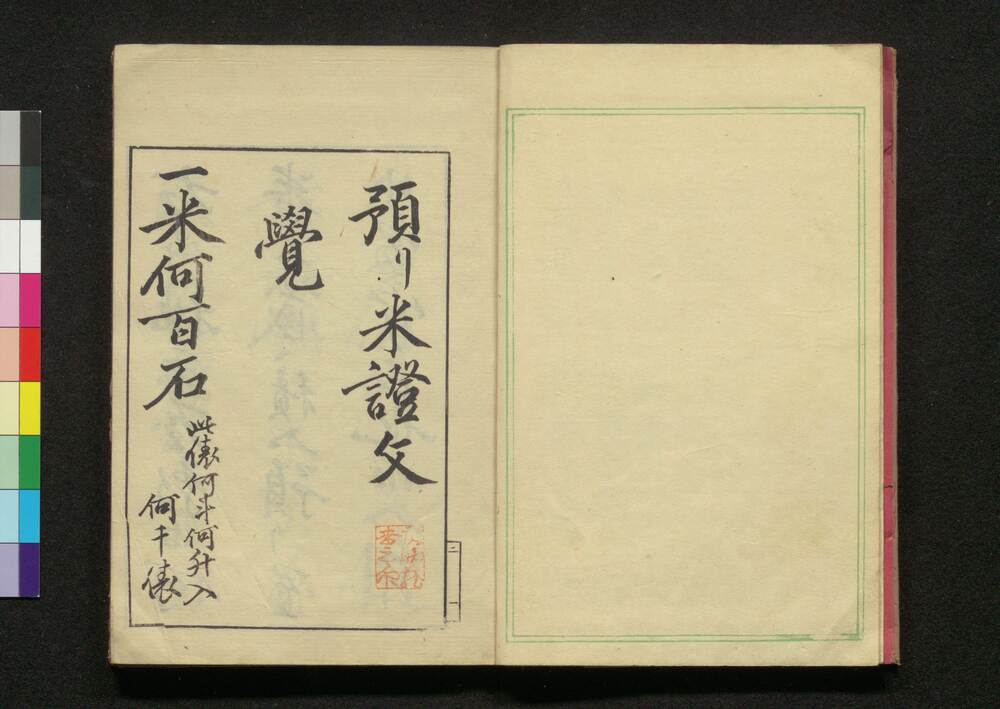 預リ米證文
覺
一米何百石
此俵何斗何升入
何千俵